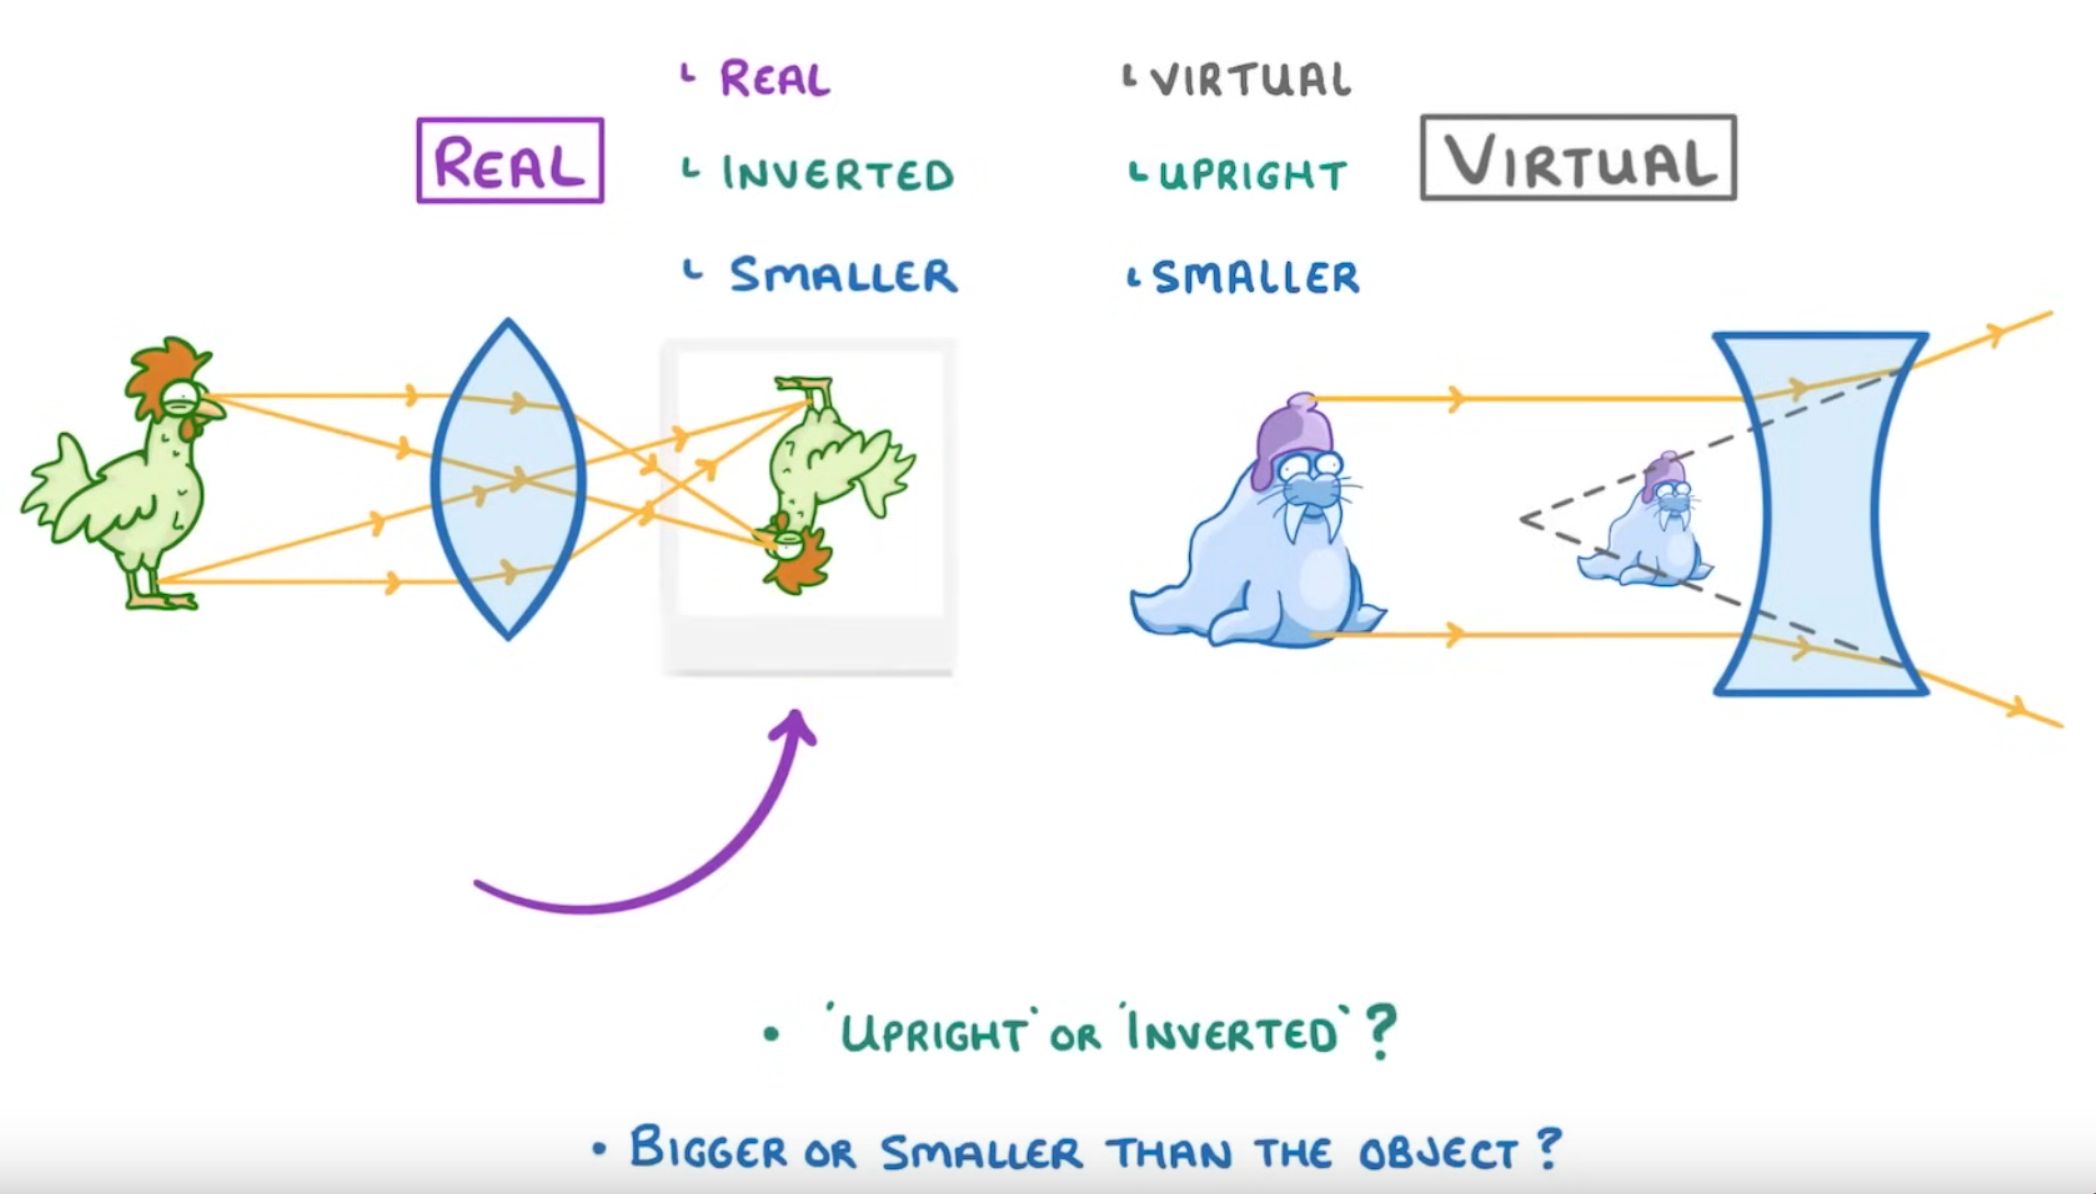 REAL
└ REAL
└ INVERTED
└ SMALLER
└ VIRTUAL
└ UPRIGHT
└ SMALLER
VIRTUAL
• 'UPRIGHT' OR 'INVERTED'?
• BIGGER OR SMALLER THAN THE OBJECT?